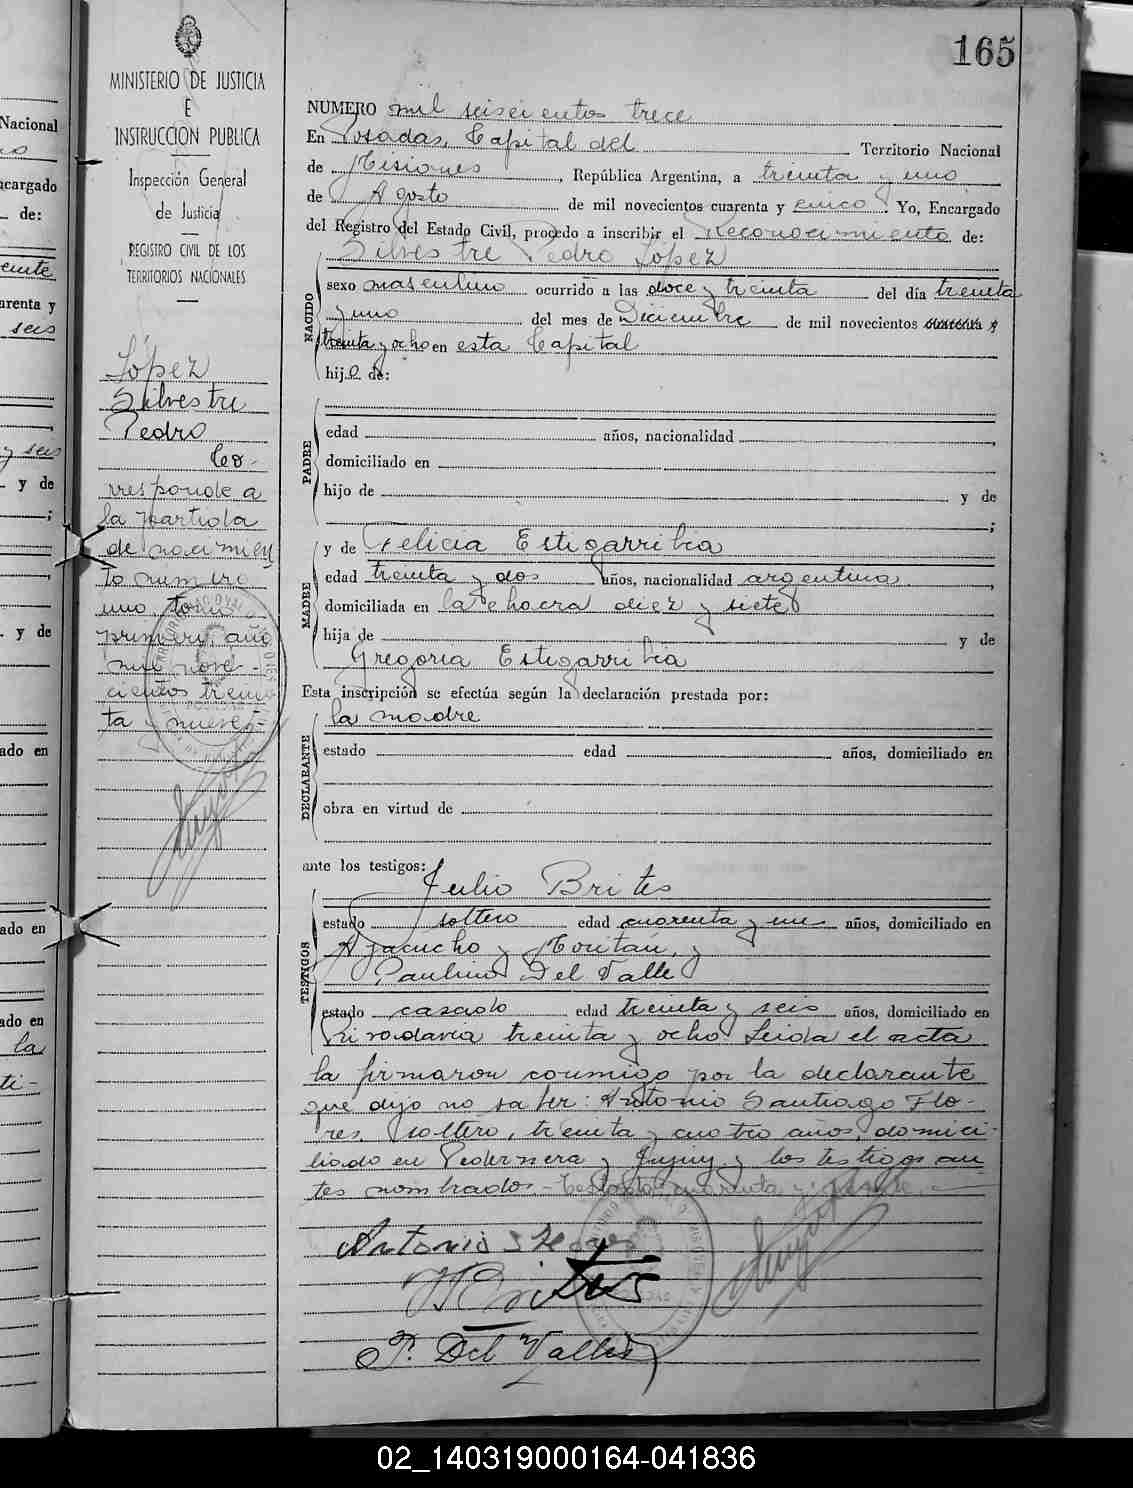 165
MINISTERIO DE JUSTICIA
E
INSTRUCCION PUBLICA
Inspección General
de Justicia
REGISTRO CIVIL DE LOS
TERRITORIOS NACIONALES
López
Silvestre
Pedro
Co-
rresponde a
la partida
de nacimien
to número
uno, tomo
primero, año
mil nove-
cientos trein
ta y nueve.-
NUMERO mil seiscientos trece
En Posadas, Capital del Territorio Nacional
de Misiones, República Argentina, a treinta y uno
de Agosto de mil novecientos cuarenta y cinco. Yo, Encargado
del Registro del Estado Civil, procedo a inscribir el Reconocimiento de:
Silvestre Pedro López
NACIDO
sexo masculino ocurrido a las doce y treinta del día treinta
y uno del mes de Diciembre de mil novecientos cuarenta y
treinta y ocho en esta Capital
hijo de:
PADRE
edad años, nacionalidad
domiciliado en
hijo de y de
;
MADRE
y de Felicia Estigarribia
edad treinta y dos años, nacionalidad argentina
domiciliada en la chacra diez y siete
hija de y de
Gregoria Estigarribia
Esta inscripción se efectúa según la declaración prestada por:
DECLARANTE
la madre
estado edad años, domiciliado en
obra en virtud de
ante los testigos:
Julio Brites
TESTIGOS
estado soltero edad cuarenta y un años, domiciliado en
Ayacucho y Roritán, y
Paulino Del Valle
estado casado edad treinta y seis años, domiciliado en
Rivadavia treinta y ocho Leida el acta
la firmaron conmigo por la declarante
que dijo no saber: Antonio Santiago Flo-
res, soltero, treinta y cuatro años, domici-
liado en Pedernera y Jujuy y los testigos an
tes nombrados.- Testado: cuarenta y:
Antonio S Flores
J Brites
P. Del Valle
Nacional
ncargado
de:
arenta y
seis
y seis
y de
;
y de
ado en
ado en
ado en
la
ti-
02_140319000164-041836